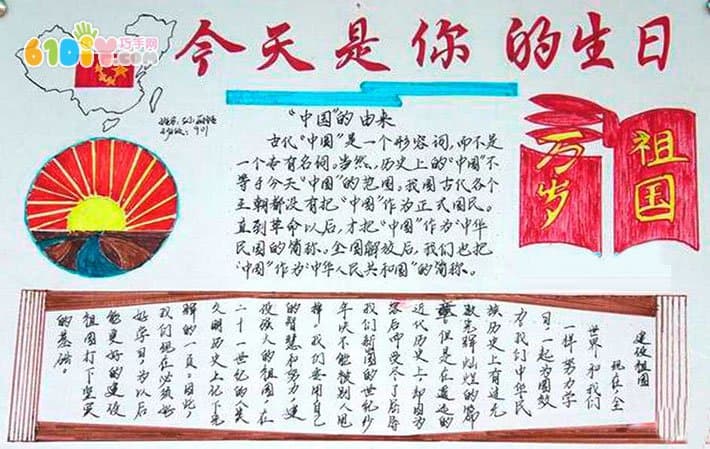 610diy巧手网
今天是你的生日
"中国"的由来
古代"中国"是一个形容词,而不是
一个专有名词。当然,历史上的"中国"不
等于今天"中国"的范围。我国古代各个
王朝都没有把"中国"作为正式国民。
直到革命以后,才把"中国"作为"中华
民国的简称。全国解放后,我们也把
"中国"作为"中华人民共和国"的简称。
祖国
万岁
建设祖国
现在,全
世界和我们
一样努力学
习,一起为国效
力,我们中华民
族历史上有过无
数光辉灿烂的篇
章,但是在遥远的
近代历史上,却因为
落后而受尽了屈辱
我们新国的世纪少
年决不能被别人甩
掉,我们要用自己
的智慧和努力,建
设强大的祖国,在
二十一世纪的人类
文明历史上记下光
辉的一页。因此,
我们现在必须好
好学习,为以后
能更好的建设
祖国打下坚实
的基础。